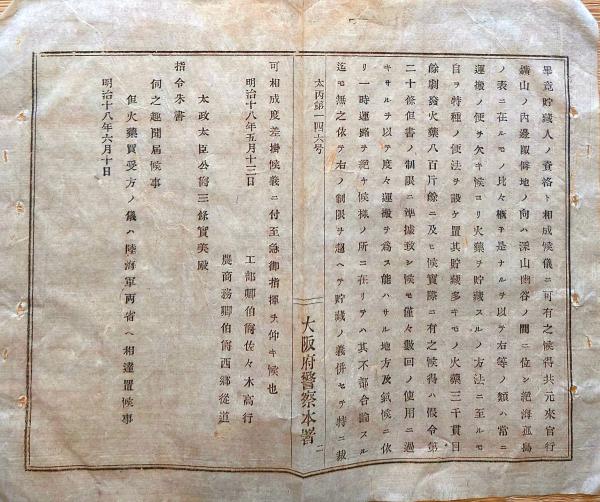 畢竟貯藏人ノ資格ト相成候儀ニ可有之候得共元來官行
鑛山ノ內邊陬僻地ノ向ハ深山幽谷ノ間ニ位シ絕海孤島
ノ表ニ在ルモノ比々概子是ナルヲ以テ右等ノ類ハ常ニ
運搬ノ便ヲ欠キ候ヨリ火藥ヲ貯藏スルノ方法ニ至ルモ
自ヲ特種ノ便法ヲ設ケ置其貯藏多キモノ火藥三千貫目
餘劇發火藥八百斤餘ニ及ヒ候實際ニ有之候得ハ假令第
二十條但書ノ制限ニ準據致シ候モ僅々數回ノ使用ニ過
キサルヲ以テ度々運搬ヲ爲ス能ハサル地方及氣候ニ依
リ一時運路ヲ絕キ候樣ノ所ニ在リテハ其不都合論スル
迄モ無之依テ右ノ制限ヲ超ヘテ貯藏ノ義併セテ特ニ裁
太丙第一四六號
大阪府警察本署
二
可相成度差掛候義ニ付至急御指揮ヲ仰キ候也
明治十八年五月十三日
工部卿伯爵佐々木高行
農商務卿伯爵西鄕從道
太政大臣公爵三條實美殿
指令朱書
伺之趣聞屆候事
但火藥買受方ノ儀ハ陸海軍兩省ヘ相達置候事
明治十八年六月十日